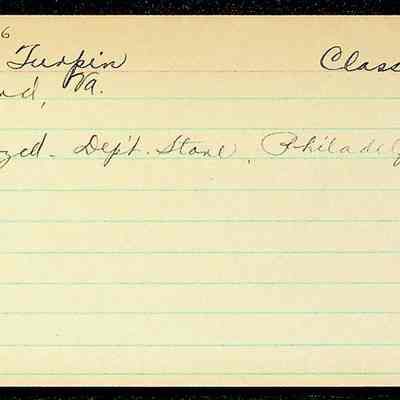 6
Turpin Class
nd, Va.
zed - Dep't. Store, Philadel